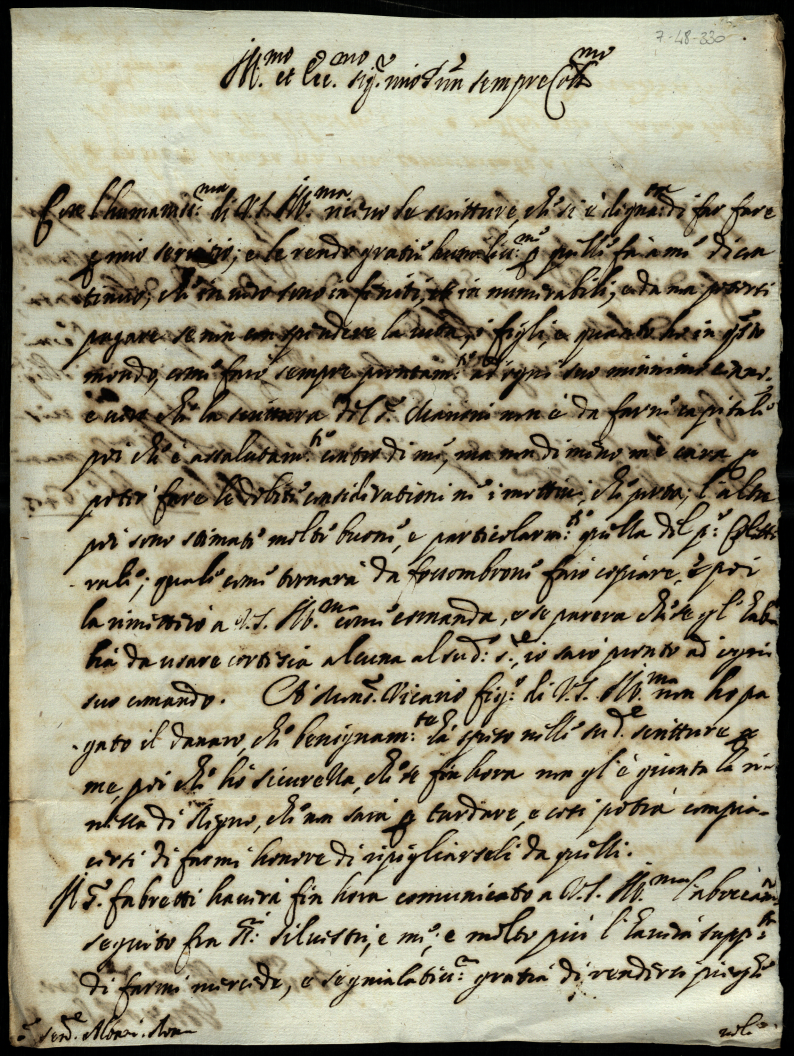 7-48-330
Ill.mo et Ecc.mo sig.r mio P.rôn sempre Coll.mo
l'humaniss.ma di V.S. Ill.ma ricevo le scritture, che si è di far fare
p mio servitio; e le rendo gratie p quelle fa a me di con
tinuo, che in vero sono infinite, et innumerabili, e da non potersi
pagare se non con spendere la vita, figli, e quanto ho in q.sto
mondo, come farò sempre prontam.te ad ogni suo minimo cenno.
è vero che la scrittura del s.r non è da farne capitale
poi che è assolutam.te contro di me, ma non di meno m'è cara p
poter fare le debite considerationi ne i motivi, che porta; l'altre
poi sono stimate molto buone, e particolarm.te quella del p.re
rale; quale come tornarà da fossombrone farò copiare, e poi
la rimetterò a V.S. Ill.ma come comanda, e se parerà che se gl'hab
bia da usare cortesia alcuna al sud.o s.re, io sarò pronto ad ogni
suo comando. Vicario fig.o di V.S. Ill.ma non ho pa
gato il danaro, che benignam.te ha speso nelle sud.e scritture p
me, poi che hò sicurezza, che se fin hora non gl'è giunta la ri=
messa di Regno, che non sarà p tardare, e così potrà compia=
cersi di farmi honore di ripigliarseli da quelli.
Il S.r fabretti haverà fin hora comunicato a V.S. Ill.ma
seguito fra silvestri, e me; e molto più l'haverà supp.ta
di farmi mercede, e segnalatiss.a gratia di renderci